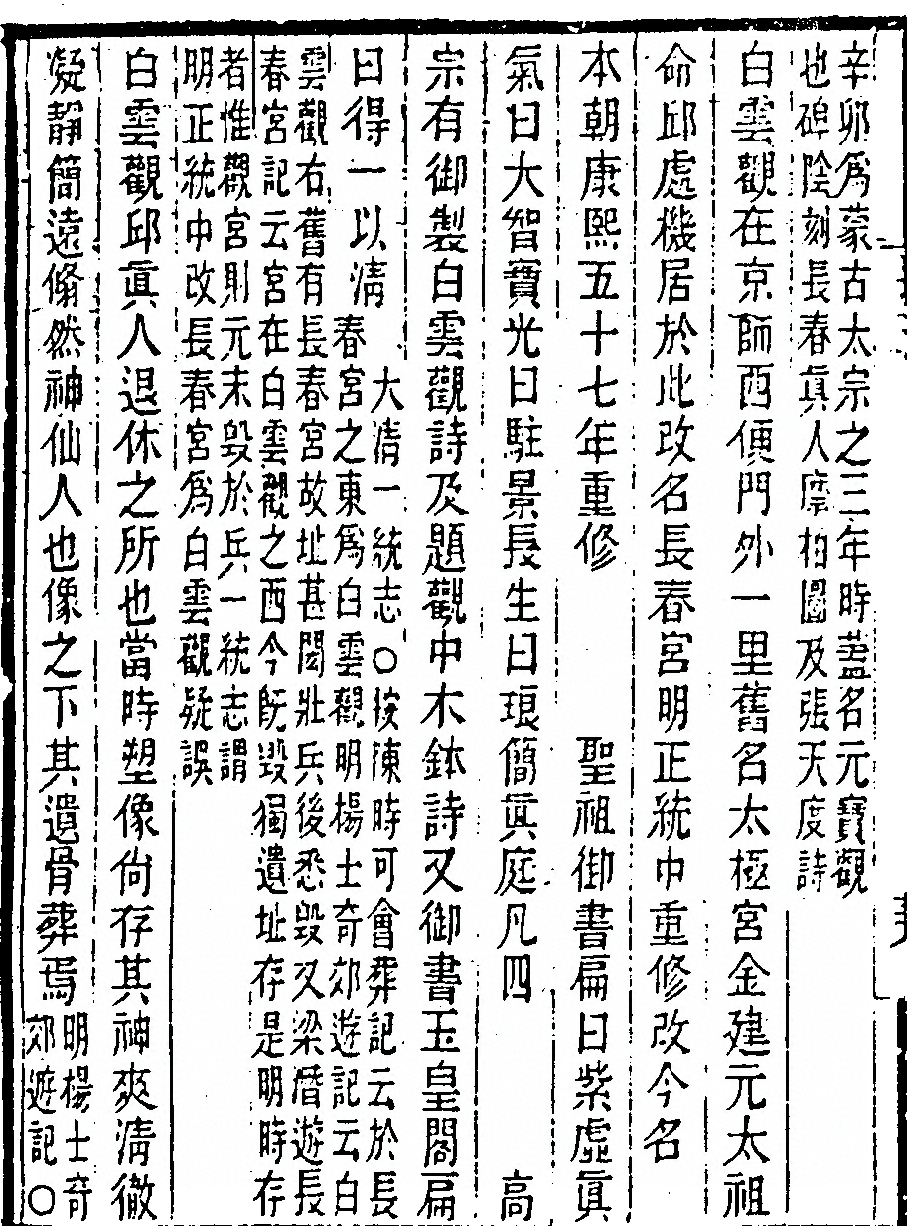 辛卯爲蒙古太宗之三年時蓋名元寶觀
也碑陰刻長春眞人摩柏圖及張天度詩
白雲觀在京師西便門外一里舊名太極宮金建元太祖
命邱處機居於此改名長春宮明正統中重修改今名
本朝康熙五十七年重修 聖祖御書扁曰紫虛眞
氣曰大智寶光曰駐景長生曰琅簡眞庭凡四 高
宗有御製白雲觀詩及題觀中木鉢詩又御書玉皇閣扁
曰得一以清
大清一統志〇按陳時可會葬記云於長
春宮之東爲白雲觀明楊士奇郊遊記云白
雲觀右舊有長春宮故址甚閎壯兵後悉毀又梁厝遊長
春宮記云宮在白雲觀之西今旣毀獨遺址存是明時存
者惟觀宮則元末毀於兵一統志謂
明正統中改長春宮爲白雲觀疑誤
白雲觀邱眞人退休之所也當時塑像尙存其神爽淸徹
凝靜簡遠翛然神仙人也像之下其遺骨葬焉
明楊士奇
郊遊記〇